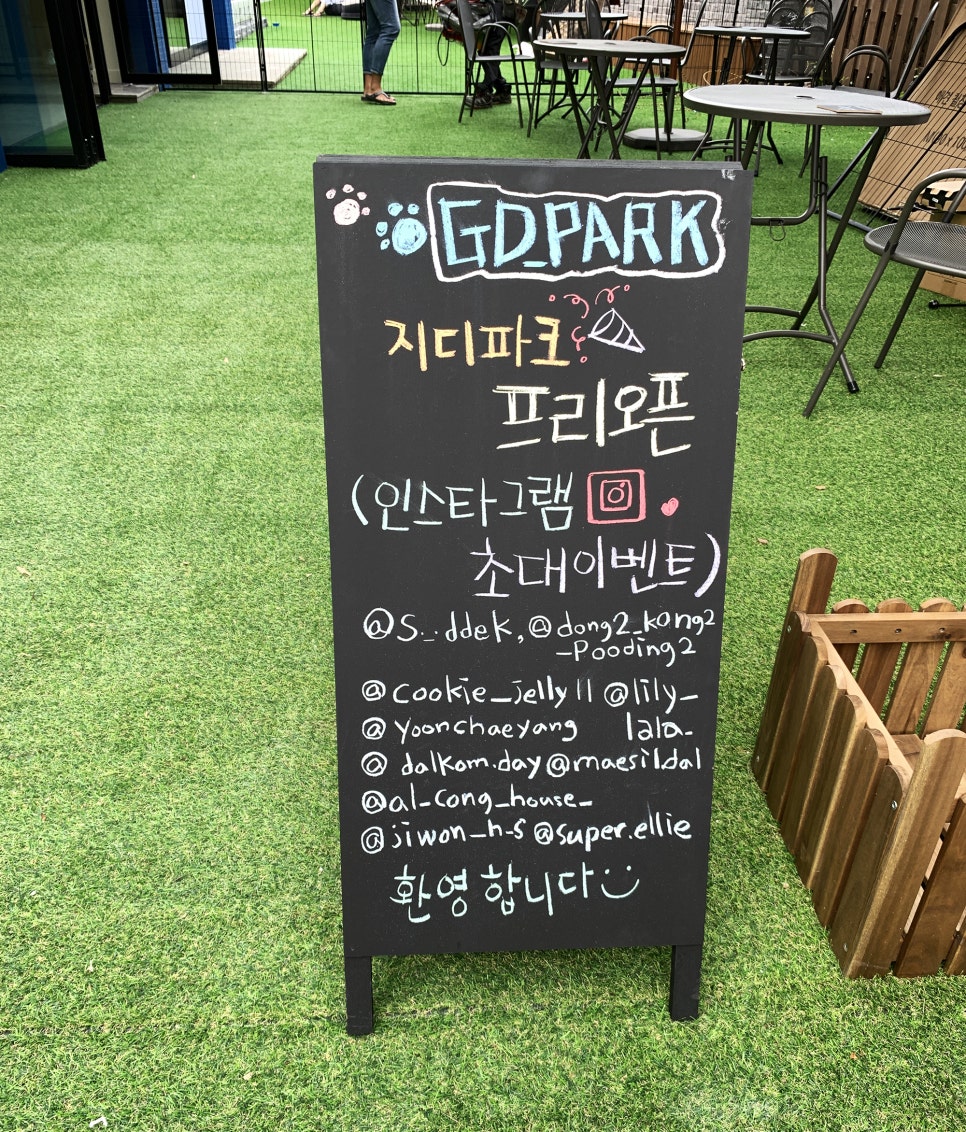 GD_PARK
지디파크
프리오픈
(인스타그램
초대이벤트)
@s._.ddek, @dong2_kong2
_pooding2
@cookie_jelly11 @lily_
@yoonchaeyang lala_
@dalkom.day @maesil.dal
@al_cong_house_
@jiwon_h_s @super.ellie
환영합니다